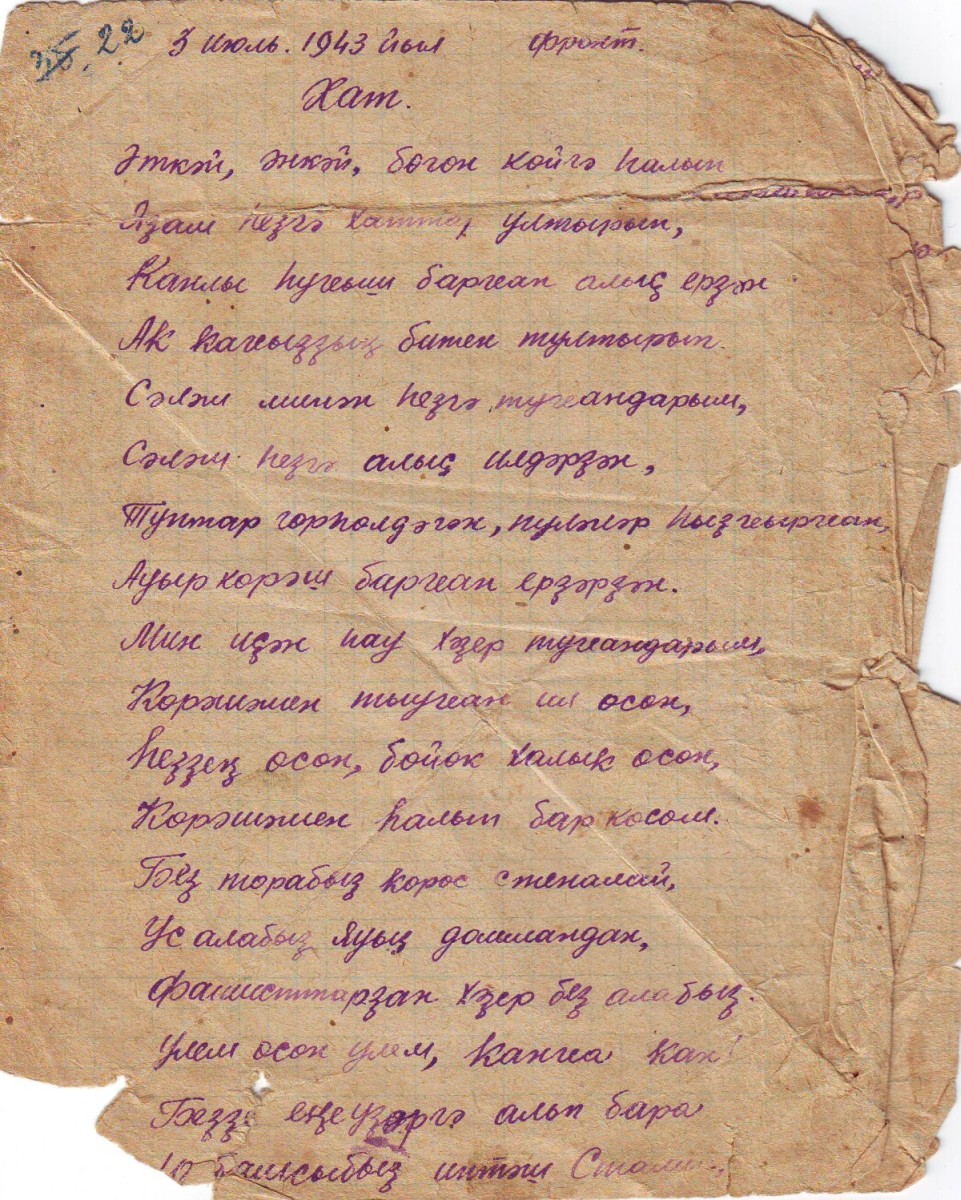 22
3 июль. 1943 йыл фронт.
Хат.
Әткәй, әнкәй, бөгөн көйгә һалып
Яҙам һеҙгә хаттар ултырып,
Канлы һуғыш барған алыҫ ерҙән
Ак кағыҙҙың битен тултырып.
Сәләм минән һеҙгә, туғандарым,
Сәләм һеҙгә алыҫ илдәрҙән,
Туптар гөрһөлдәгән, пуләләр һыҙғырған,
Ауыр көрәш барған ерҙәрҙән.
Мин иҫән һау хәҙер туғандарым,
Көрәшәмен тыуған ил өсөн,
Һеҙҙең өсөн, бөйөк халык өсөн,
Көрәшәмен һалып бар көсөм.
Беҙ торабыҙ корос стеналай,
Үс алабыҙ яуыҙ дошмандан,
Фашисттарҙан хәҙер беҙ алабыҙ.
Үлем өсөн үлем, канға кан!
Беҙҙе еңеүҙәргә алып бара
башсыбыҙ иптәш